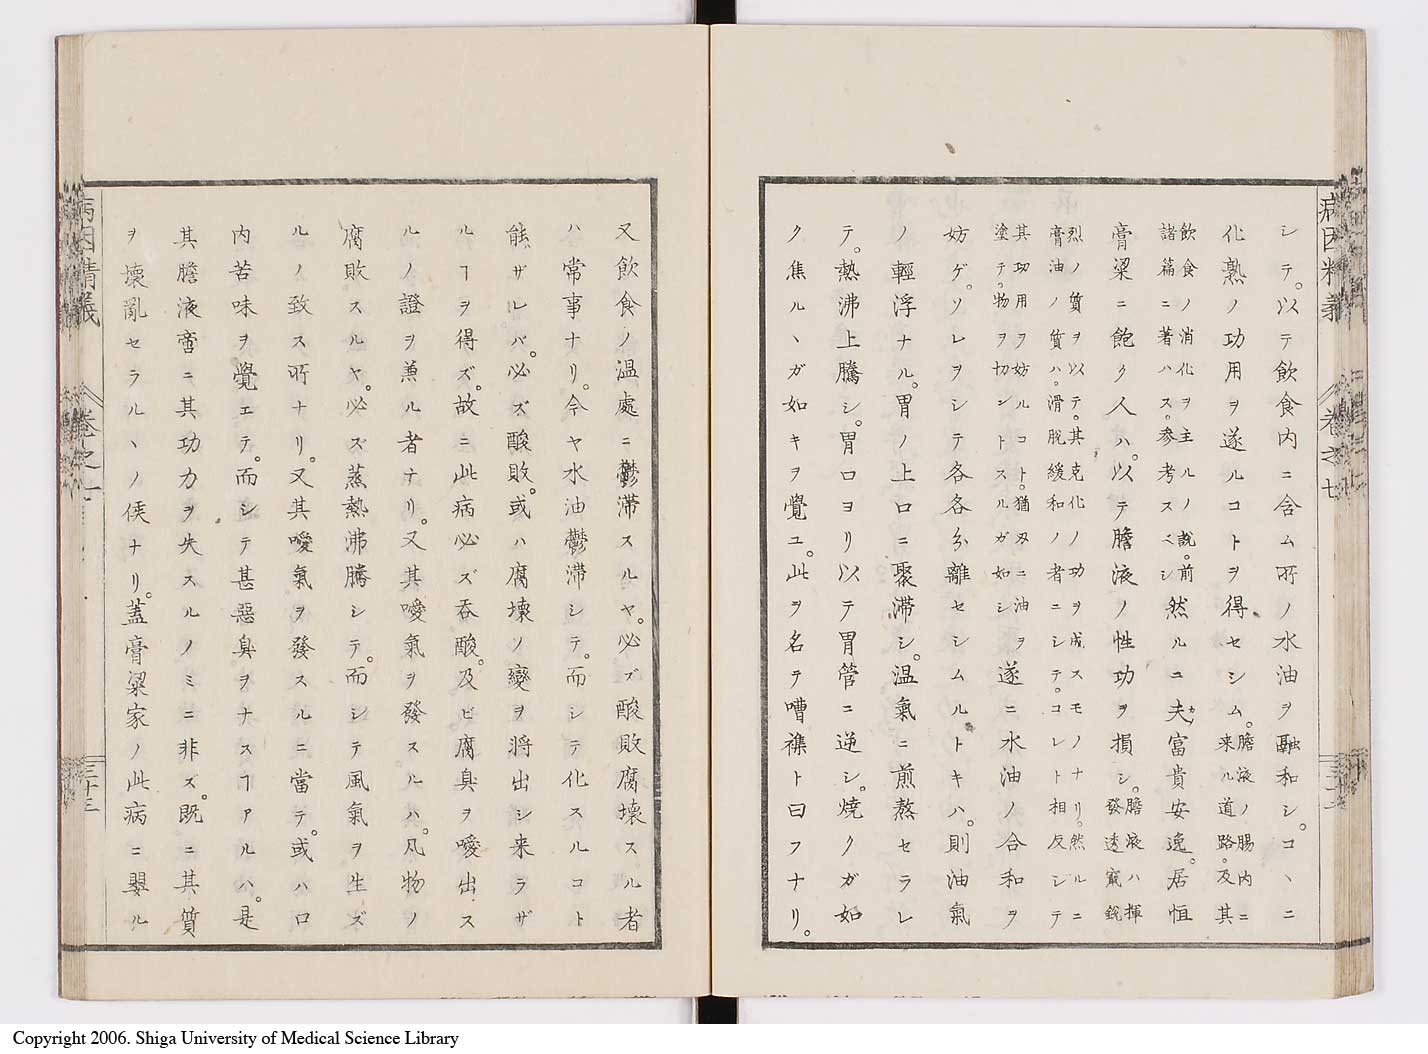 シテ。以テ飲食内ニ含ム所ノ水油ヲ融和シ。コヽニ
化熟ノ功用ヲ遂ルコトヲ得セシム。膽液ノ腸内ニ
来ル道路。及其
飲食ノ消化ヲ主ルノ説。前
諸篇ニ著ハス。参考スベシ然ルニ夫富貴安逸。居恒
膏粱ニ飽ク人ハ。以テ膽液ノ性功ヲ損シ。膽液ハ揮
發透竄鋭
烈ノ質ヲ以テ。其克化ノ功ヲ成スモノナリ。然ルニ
膏油ノ質ハ。滑脱緩和ノ者ニシテ。コレト相反シテ
其功用ヲ妨ルコト。猶刃ニ油ヲ
塗テ。物ヲ切ントスルガ如シ遂ニ水油ノ合和ヲ
妨ゲ。ソレヲシテ各各分離セシムルトキハ。則油氣
ノ輕浮ナル。胃ノ上口ニ聚滞シ。温氣ニ煎熬セラレ
テ。熱沸上騰シ。胃口ヨリ以テ胃管ニ逆シ。焼クガ如
ク焦ルヽガ如キヲ覺ユ。此ヲ名テ嘈襍ト曰フナリ。
病因精義
卷之七
三十二
又飲食ノ温處ニ鬱滞スルヤ。必ズ酸敗腐壊スル者
ハ常事ナリ。今ヤ水油鬱滞シテ。而シテ化スルコト
能ザレバ。必ズ酸敗。或ハ腐壊ノ變ヲ將出シ来ラザ
ルヿヲ得ズ。故ニ此病必ズ呑酸。及ビ腐臭ヲ噯出ス
ルノ證ヲ兼ル者ナリ。又其噯氣ヲ發スルハ。凡物ノ
腐敗スルヤ。必ズ蒸熱沸騰シテ。而シテ風氣ヲ生ズ
ルノ致ス所ナリ。又其噯氣ヲ發スルニ當テ。或ハ口
内苦味ヲ覺エテ。而シテ甚惡臭ヲナスヿアルハ。是
其膽液啻ニ其功力ヲ失スルノミニ非ズ。既ニ其質
ヲ壊亂セラルヽノ候ナリ。蓋膏粱家ノ此病ニ嬰ル
病因精義
卷之
三十三
Copyright 2006. Shiga University of Medical Science Library